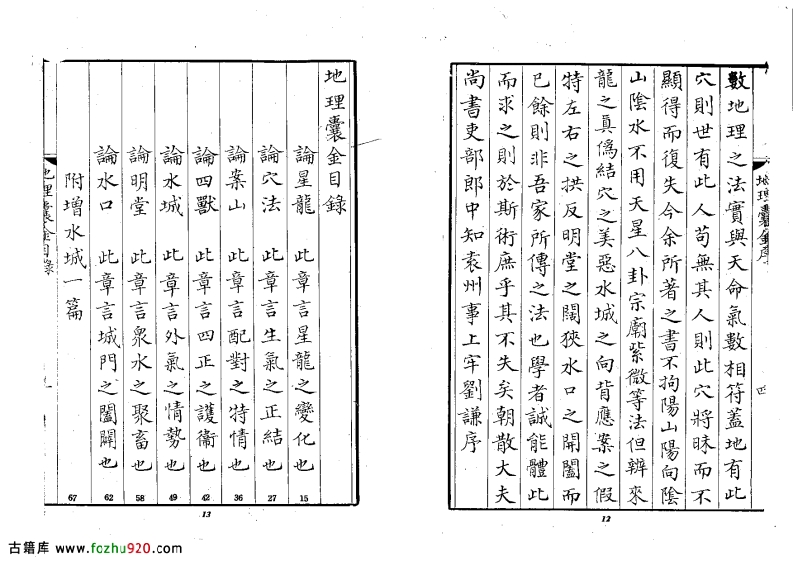 數地理之法實與天命氣數相符蓋地有此
穴則世有此人苟無其人則此穴將昧而不
顯得而復失今余所著之書不拘陽山陽向陰
山陰水不用天星八卦宗廟紫微等法但辨來
龍之真偽結穴之美惡水城之向背應案之假
特左右之拱反明堂之闊狹水口之開闔而
已餘則非吾家所傳之法也學者誠能體此
而求之則於斯術庶乎其不失矣朝散大夫
尚書吏部郎中知袁州事上牢劉謙序
地理囊金序
四
12
地理囊金目錄
論星龍 此章言星龍之變化也 15
論穴法 此章言生氣之正結也 27
論案山 此章言配對之特情也 36
論四獸 此章言四正之護衞也 42
論水城 此章言外氣之情勢也 49
論明堂 此章言衆水之聚畜也 58
論水口 此章言城門之闔闢也 62
附增水城一篇 67
地理囊金目錄
13
古籍库 www.fozhu920.com